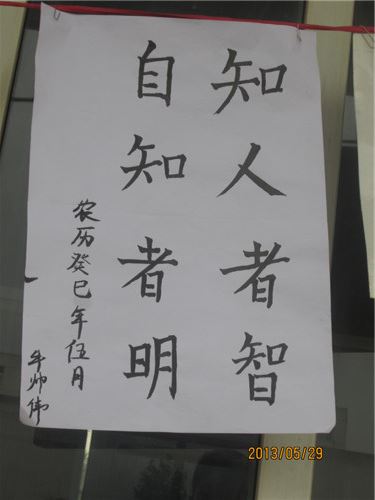 知人者智
自知者明
农历癸巳年伍月
牛帅伟
2013/05/29